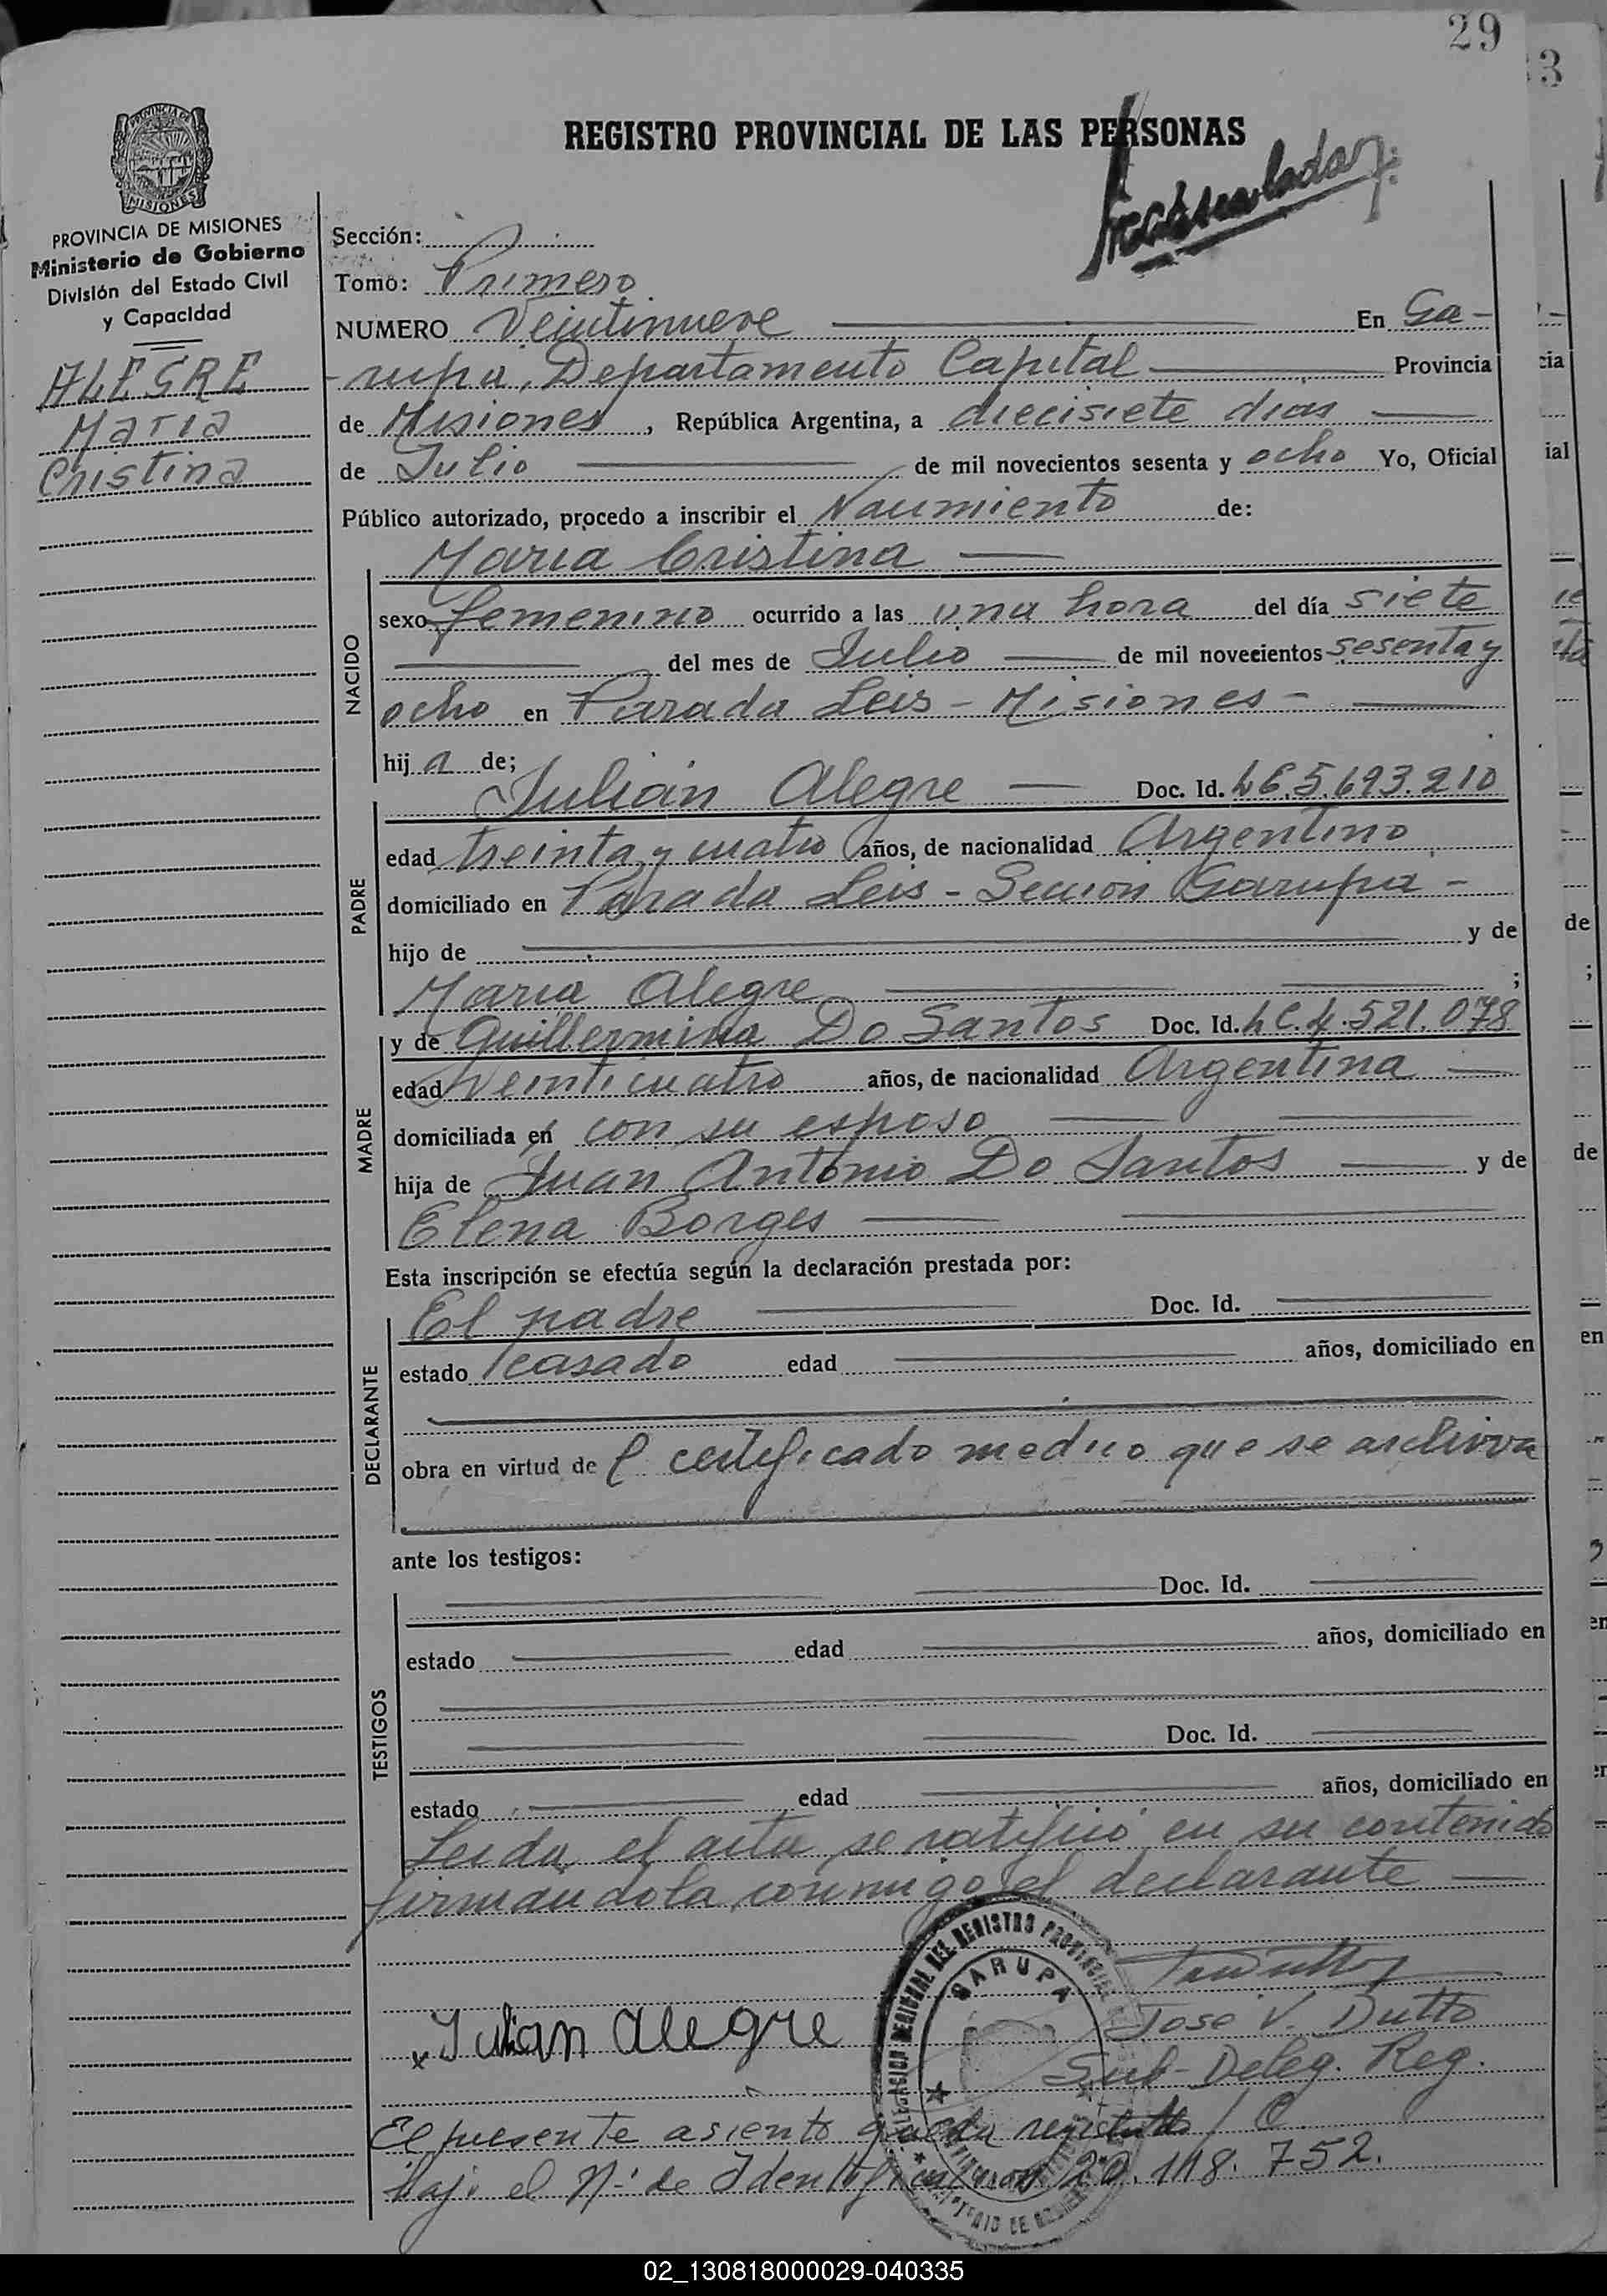 29
3
REGISTRO PROVINCIAL DE LAS PERSONAS
PROVINCIA DE MISIONES
Ministerio de Gobierno
División del Estado Civil
y Capacidad
ALEGRE
Maria
Cristina
Sección:
Tomo: Primero
NUMERO Veintinueve En Ga-
-rupa, Departamento Capital Provincia
de Misiones, República Argentina, a diecisiete dias
de Julio de mil novecientos sesenta y ocho Yo, Oficial
Público autorizado, procedo a inscribir el Nacimiento de:
NACIDO
Maria Cristina
sexo femenino ocurrido a las una hora del día siete
del mes de Julio de mil novecientos sesenta y
ocho en Parada Leis - Misiones -
hija de;
PADRE
Julian Alegre Doc. Id. L.E. 5.693.210
edad treinta y cuatro años, de nacionalidad Argentino
domiciliado en Parada Leis - Seccion Garupa -
hijo de y de
Maria Alegre ;
MADRE
y de Guillermina Do Santos Doc. Id. L.C. 4.521.078
edad Veinticuatro años, de nacionalidad Argentina
domiciliada en con su esposo
hija de Juan Antonio Do Santos y de
Elena Borges
Esta inscripción se efectúa según la declaración prestada por:
DECLARANTE
El padre Doc. Id.
estado casado edad años, domiciliado en
obra en virtud de l certificado medico que se archiva
ante los testigos:
TESTIGOS
Doc. Id.
estado edad años, domiciliado en
Doc. Id.
estado edad años, domiciliado en
Leida el acta se ratificó en su contenido
firmandola conmigo el declarante
GARUPA
Julian Alegre
Jose V. Dutto
Sub-Deleg. Reg.
El presente asiento queda
bajo el Nº de Identificacion 20.118.752.
02_130818000029-040335